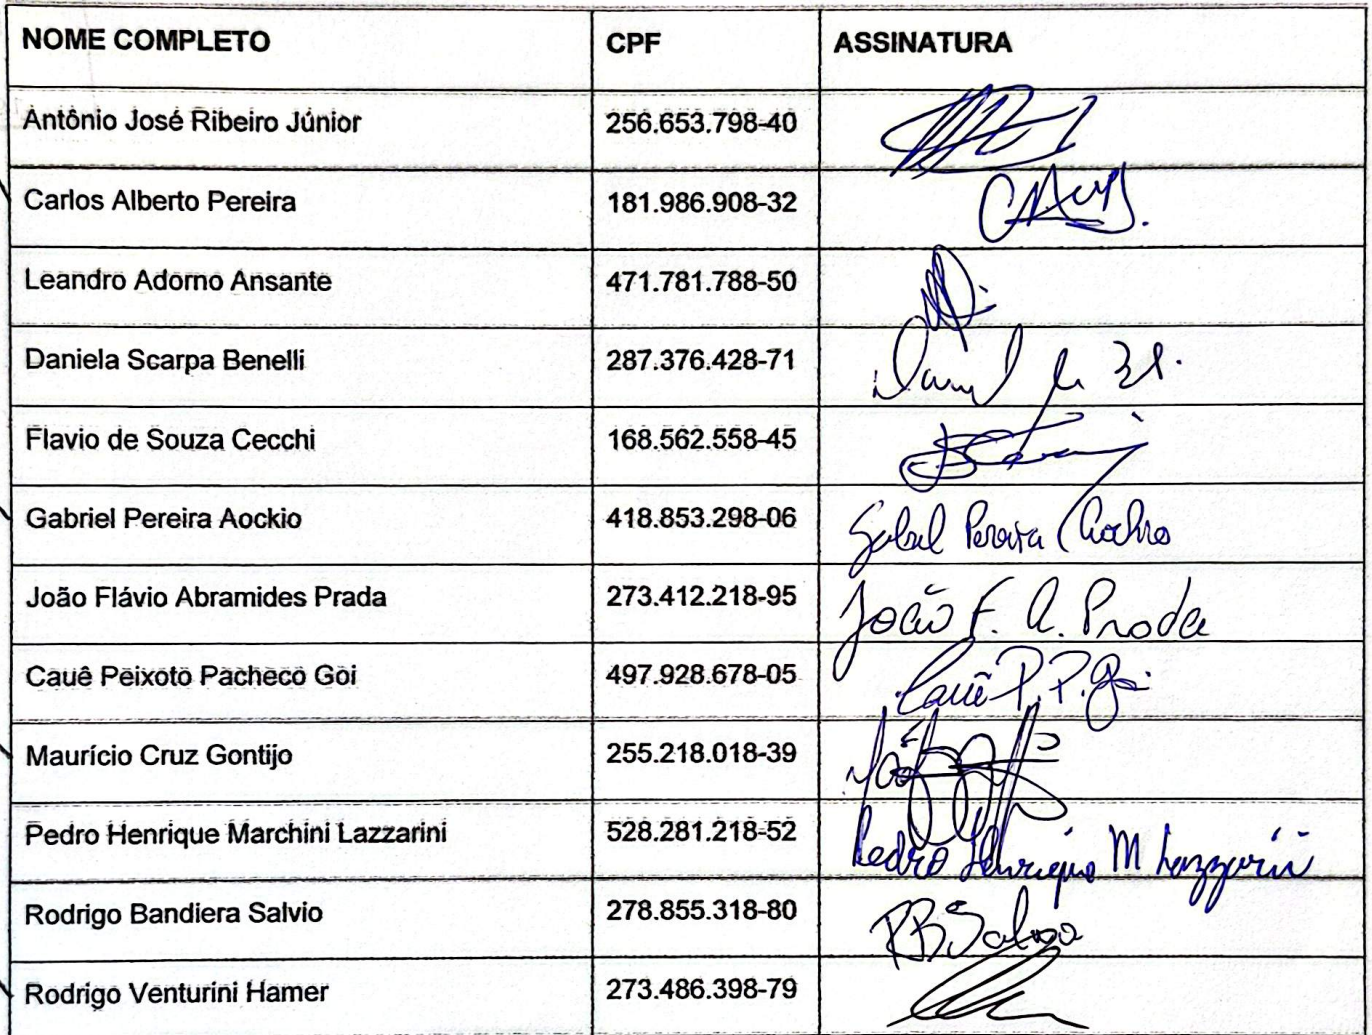 NOME COMPLETO CPF ASSINATURA
Antônio José Ribeiro Júnior 256.653.798-40
Carlos Alberto Pereira 181.986.908-32
Leandro Adorno Ansante 471.781.788-50
Daniela Scarpa Benelli 287.376.428-71
Flavio de Souza Cecchi 168.562.558-45
Gabriel Pereira Aockio 418.853.298-06 Pereira
João Flávio Abramides Prada 273.412.218-95 João F. A. Prada
Cauê Peixoto Pacheco Goi 497.928.678-05 Cauê P. P. Goi
Maurício Cruz Gontijo 255.218.018-39
Pedro Henrique Marchini Lazzarini 528.281.218-52 Pedro Henrique M Lazzarini
Rodrigo Bandiera Salvio 278.855.318-80 RBSalvio
Rodrigo Venturini Hamer 273.486.398-79